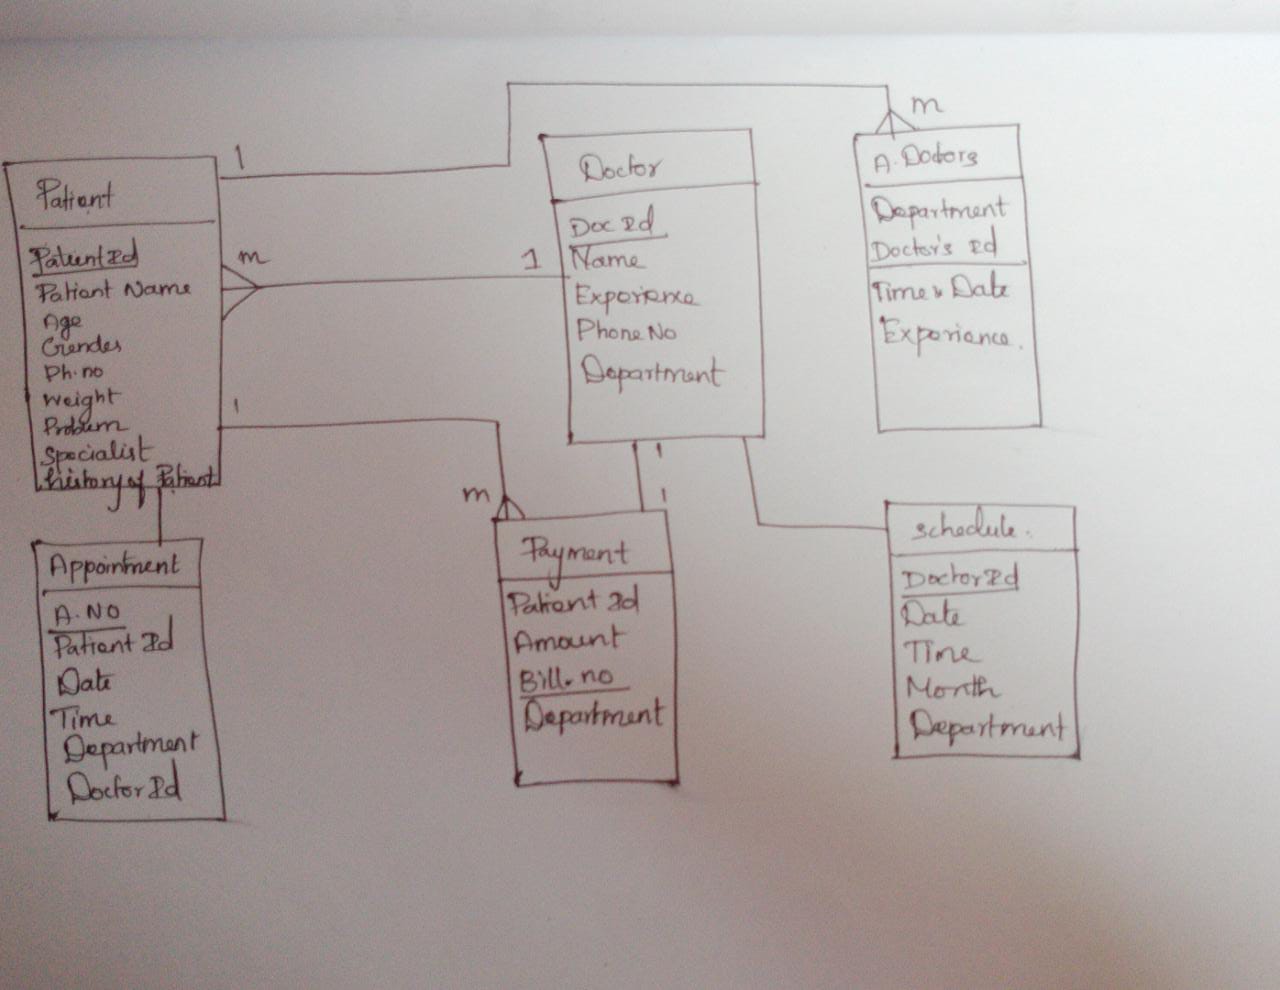 Patient
Patient Id
Patient Name
Age
Gender
Ph.no
Weight
Problem
Specialist
history of Patient
1
m
1
Doctor
Doc Id
Name
Experience
Phone No
Department
1
m
A. Doctors
Department
Doctor's Id
Time & Date
Experience.
1
m
1
1
Appointment
A.NO
Patient Id
Date
Time
Department
Doctor Id
Payment
Patient Id
Amount
Bill.no
Department
schedule.
Doctor Id
Date
Time
Month
Department